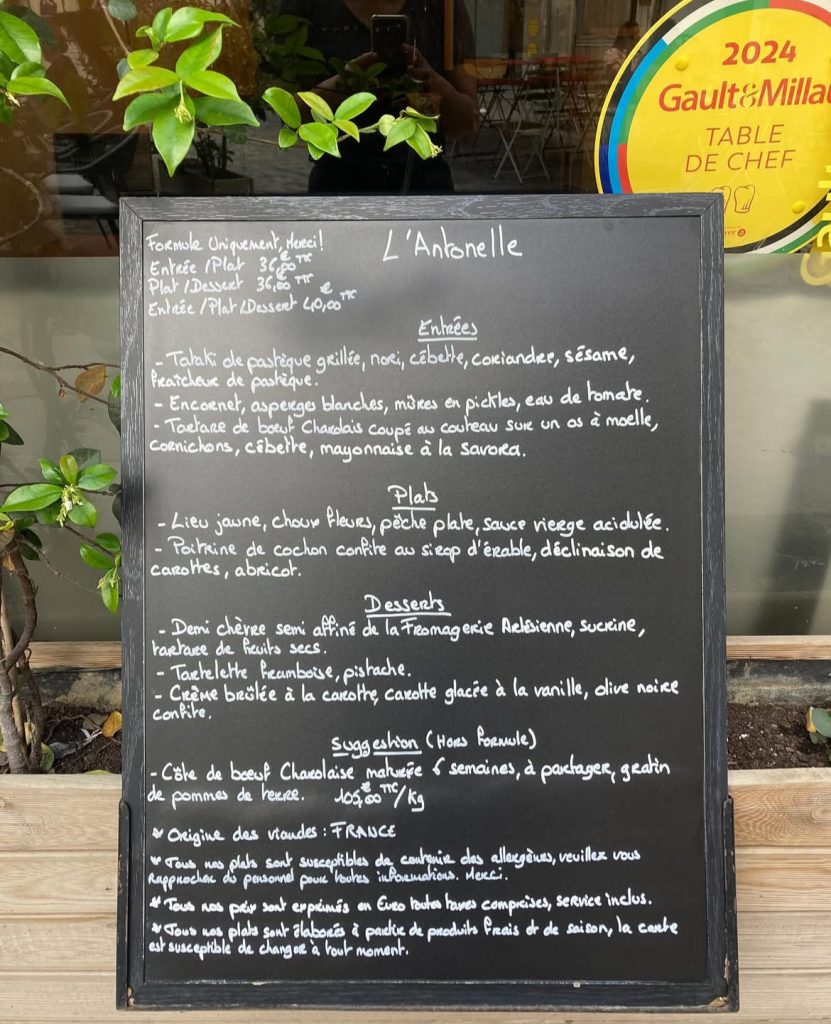 2024
Gault&Millau
TABLE
DE CHEF
L'Antonelle
Formule Uniquement, Merci!
Entrée /Plat 36,00€ TTC
Plat /Dessert 36,00€ TTC
Entrée /Plat /Dessert 40,00€ TTC
Entrées
- Tataki de pastèque grillée, nori, cébette, coriandre, sésame,
fraîcheur de pastèque.
- Encornet, asperges blanches, mûres en pickles, eau de tomate.
- Tartare de bœuf Charolais coupé au couteau sur un os à moelle,
cornichons, cébette, mayonnaise à la savora.
Plats
- Lieu jaune, choux fleurs, pêche plate, sauce vierge acidulée.
- Poitrine de cochon confite au sirop d'érable, déclinaison de
carottes, abricot.
Desserts
- Demi chèvre semi affiné de la Fromagerie Arlésienne, sucrine,
tartare de fruits secs.
- Tartelette framboise, pistache.
- Crème brûlée à la carotte, carotte glacée à la vanille, olive noire
confite.
Suggestion (Hors formule)
- Côte de bœuf Charolaise maturée 6 semaines, à partager, gratin
de pommes de terre. 105,00€ TTC/Kg
* Origine des viandes : FRANCE
* Tous nos plats sont susceptibles de contenir des allergènes, veuillez vous
rapprocher du personnel pour toutes informations. Merci.
* Tous nos prix sont exprimés en Euro toutes taxes comprises, service inclus.
* Tous nos plats sont élaborés à partir de produits frais et de saison, la carte
est susceptible de changer à tout moment.